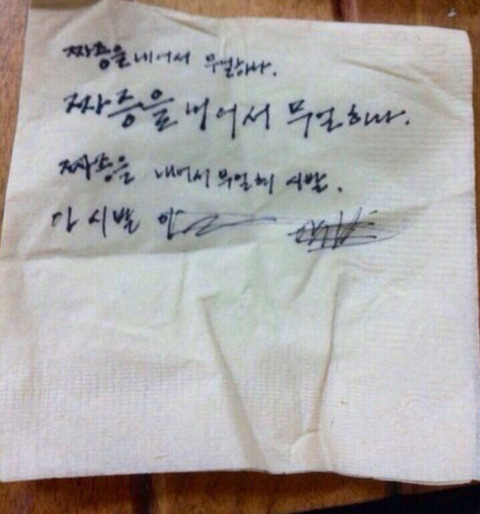 짜증을 내어서 무얼하나.
짜증을 내어서 무얼하나.
짜증을 내어서 무얼해 시발.
가 시발 안